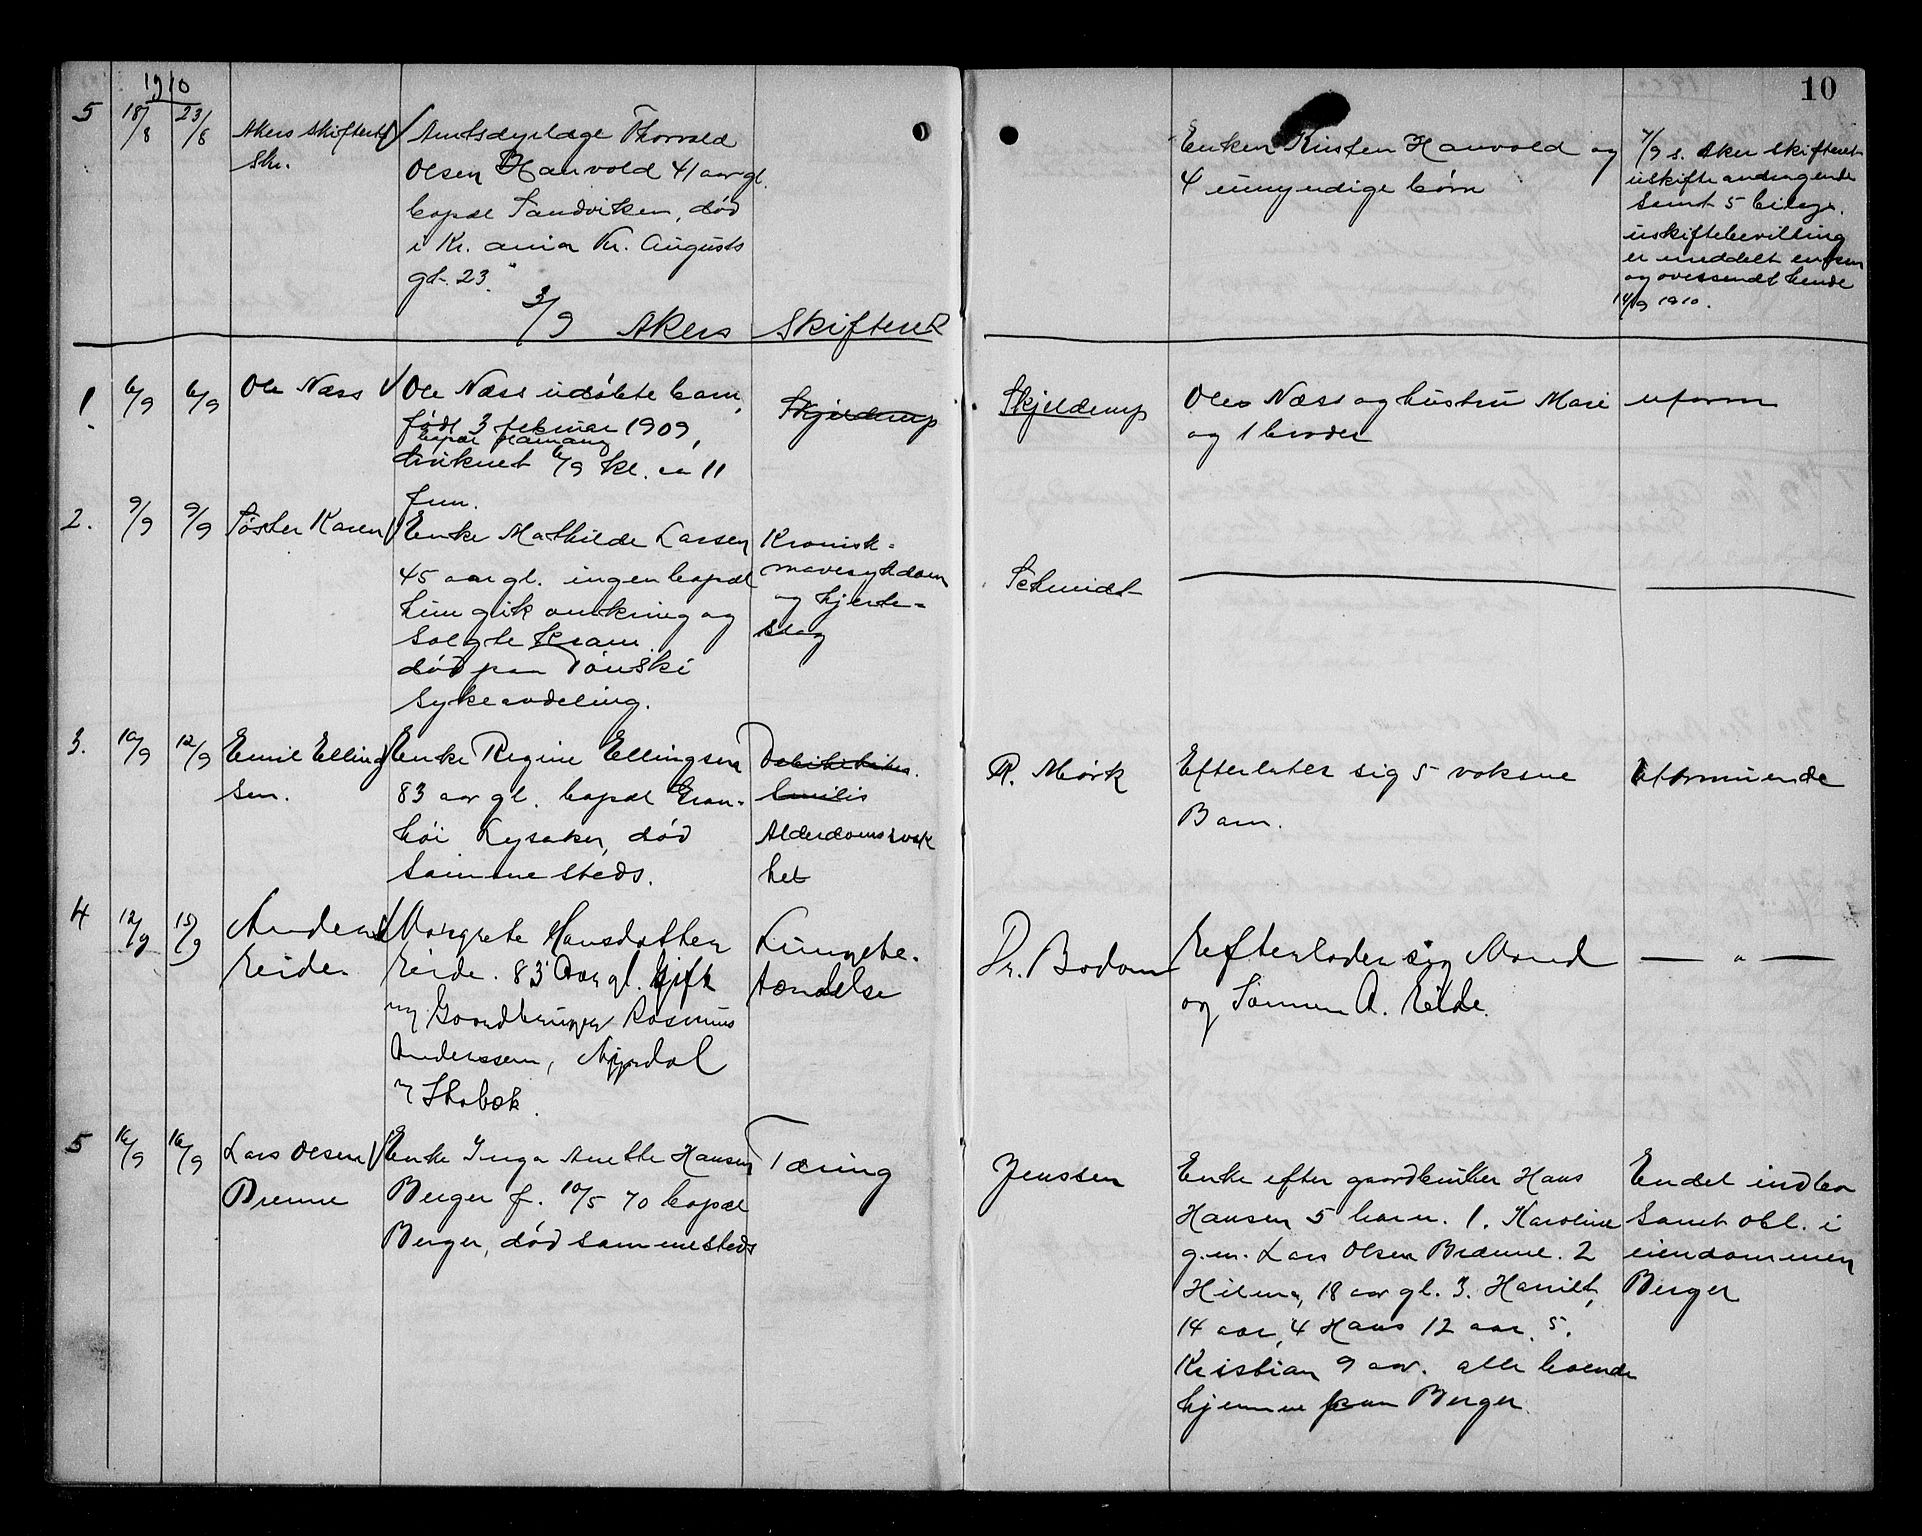 1910
10
5 18/8 23/8 Akers skifterets
skr.
Amtsdyrlæge Thorvald
Olsen Hanvold 41 aar gl.
bopæl Sandviken, død
i Kr. ania Kr. Augusts
gt. 23.
Enken Kirsten Hanvold og
4 umyndige börn
7/9 s. Aker skifteret
uskifteandragende
samt 5 bilag.
uskiftebevilling
er meddelt enken
og oversendt hende
14/9 1910.
3/9 Akers Skifteret
1. 6/9 6/9 Ole Næss
Ole Næss udöbte barn,
født 3 februar 1909,
bopæl
druknet 6/9 kl. ca 11
fm.
Skjelderup
Skjelderup
Oles Næss og hustru Mari
og 1 broder
uform
2. 9/9 9/9 Söster Karen
Enke Mathilde Larsen
45 aar gl. ingen bopæl
hun gik omkring og
solgte kram.
död paa Tanski
sykeavdeling.
Kronisk-
mavesykdom
og hjerte-
slag
Schmidt
3. 10/9 12/9 Emil Elling
sen.
Enke Regine Ellingsen
83 aar gl. bopæl Gran-
høi Lysaker, död
sammesteds.
senilis
Alderdomssvak
het
R. Mörk
Efterlater sig 5 voksne
Barn.
Uformuende
4 12/9 15/9 Anders
Eide.
Margrete Hansdatter
Eide. 83 Aar gl. Gift
m/ Gaardbruger Rasmus
Anderssen,
Lungebe-
tændelse
Dr. Bodom
Efterlader sig Mand
og Sønnen A. Eide.
— " —
5 16/9 16/9 Lars Olsen
Brenne
Enke Inga Anette Hansen
Berger f. 10/5 70 bopæl
Berger, död sammesteds
Tæring
Jenssen
Enke efter gaardbruker Hans
Hansen 5 barn. 1. Karoline
g. m. Lars Olsen Brænne. 2
Hilma, 18 aar gl. 3. Harriet,
14 aar, 4 Hans 12 aar, 5.
Kristian 9 aar. alle boende
hjemme paa Berger.
Endel indbo
samt obl. i
eiendommen
Berger